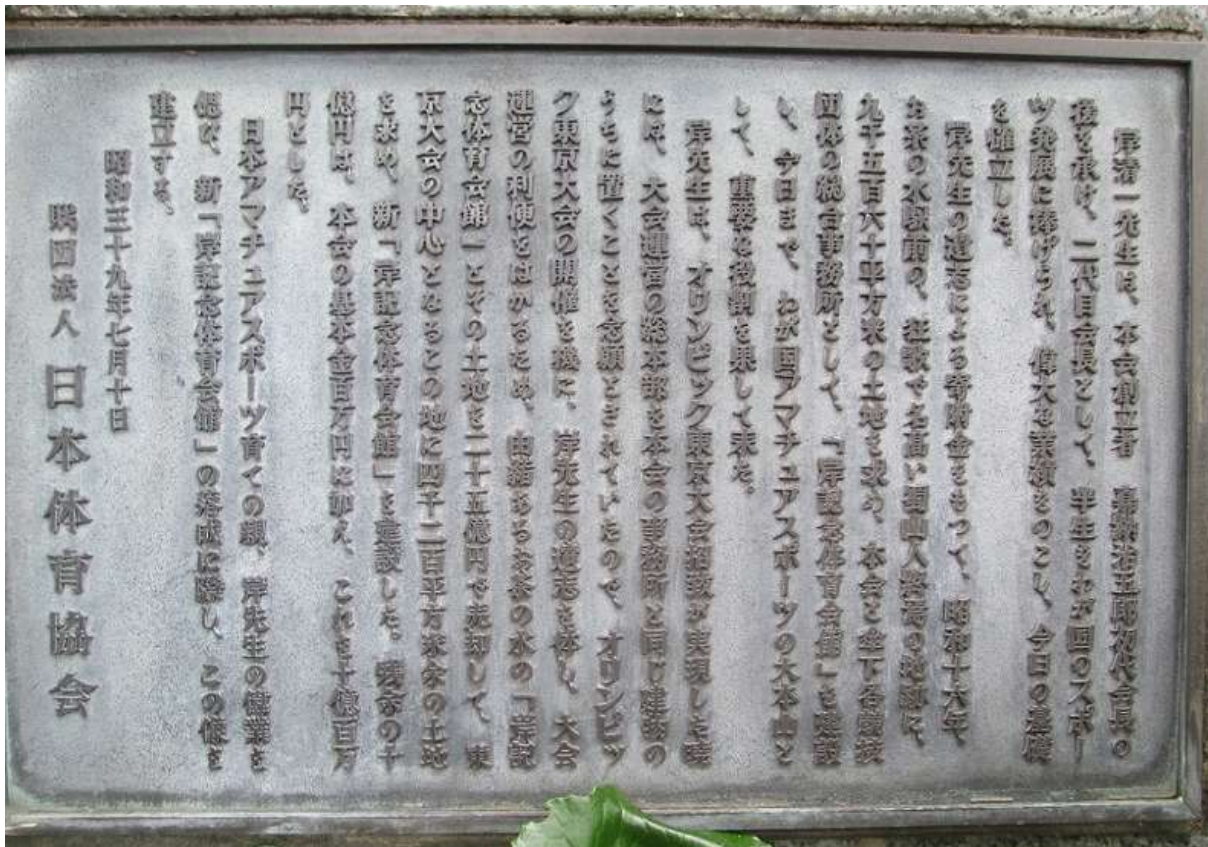 岸清一先生は、本会創立者 嘉納治五郎初代会長の
後を承け、二代目会長として、半生をわが国のスポー
ツ発展に捧げられ、偉大な業績をのこし、今日の基礎
を確立した。
岸先生の遺志による寄附金をもつて、昭和十六年、
お茶の水駅前の、狂歌で名高い蜀山人終焉の地跡に、
九千五百六十平方米の土地を求め、本会と傘下各競技
団体の総合事務所として、「岸記念体育会館」を建設
し、今日まで、わが国アマチュアスポーツの大本山と
して、重要な役割を果して来た。
岸先生は、オリンピック東京大会招致が実現した暁
には、大会運営の総本部を本会の事務所と同じ建物の
うちに置くことを念願とされていたので、オリンピッ
ク東京大会の開催を機に、岸先生の遺志を体し、大会
運営の利便をはかるため、由緒あるお茶の水の「岸記
念体育会館」とその土地を二十五億円で売却して、東
京大会の中心となるこの地に四千二百平方米余の土地
を求め、新「岸記念体育会館」を建設した。残余の千
億円は、本会の基本金百万円に加え、これを十億百万
円とした。
日本アマチュアスポーツ育ての親、岸先生の偉業を
偲び、新「岸記念体育会館」の落成に際し、この像を
建立する。
昭和三十九年七月十日
財団法人 日本体育協会